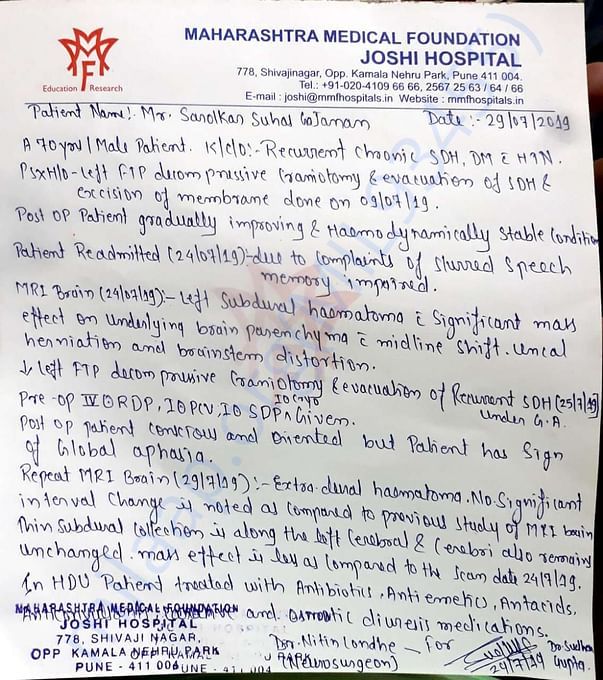 MAHARASHTRA MEDICAL FOUNDATION
JOSHI HOSPITAL
778, Shivajinagar, Opp. Kamala Nehru Park, Pune 411 004.
Tel.: +91-020-4109 66 66, 2567 25 63 / 64 / 66
E-mail : joshi@mmfhospitals.in Website : mmfhospitals.in
MMF
Education Research
Patient Name:- Mr. Sanolkar Suhas Gajanan Date :- 29/07/2019
A 70 yr/Male Patient. K/C/O:- Recurrent chronic SDH, DM c̄ HTN.
PSxH/O - Left FTP decompressive Craniotomy & evacuation of SDH &
excision of membrane done on 09/07/19.
Post OP Patient gradually improving & Haemodynamically Stable Condition
Patient Readmitted (24/07/19)-due to complaints of slurred speech
memory impaired.
MRI Brain (24/07/19):- Left Subdural haematoma c̄ Significant mass
effect on underlying brain parenchyma c̄ midline shift. Uncal
herniation and brainstem distortion.
↓ Left FTP decompressive Craniotomy & evacuation of Recurrent SDH (25/7/19)
under G.A.
Pre-op IV ORDP, IOPCV, IO SDP Given.
Post op patient conscious and oriented but Patient has Sign
of Global aphasia.
Repeat MRI Brain (29/7/19):- Extra-dural haematoma. No Significant
interval Change is noted as compared to previous study of MRI brain
Thin subdural collection is along the left Cerebral & Cerebri also remains
unchanged. mass effect is less as compared to the scan date 24/7/19.
In HDU Patient treated with Antibiotics, Antiemetics, Antacids,
and osmotic diuresis medications.
MAHARASHTRA MEDICAL FOUNDATION
JOSHI HOSPITAL
778, SHIVAJI NAGAR,
OPP KAMALA NEHRU PARK
PUNE - 411 004
Dr. Nitin Londhe - for
(Neurosurgeon)
Dr. Sudhan
Gupta.
29/7/19